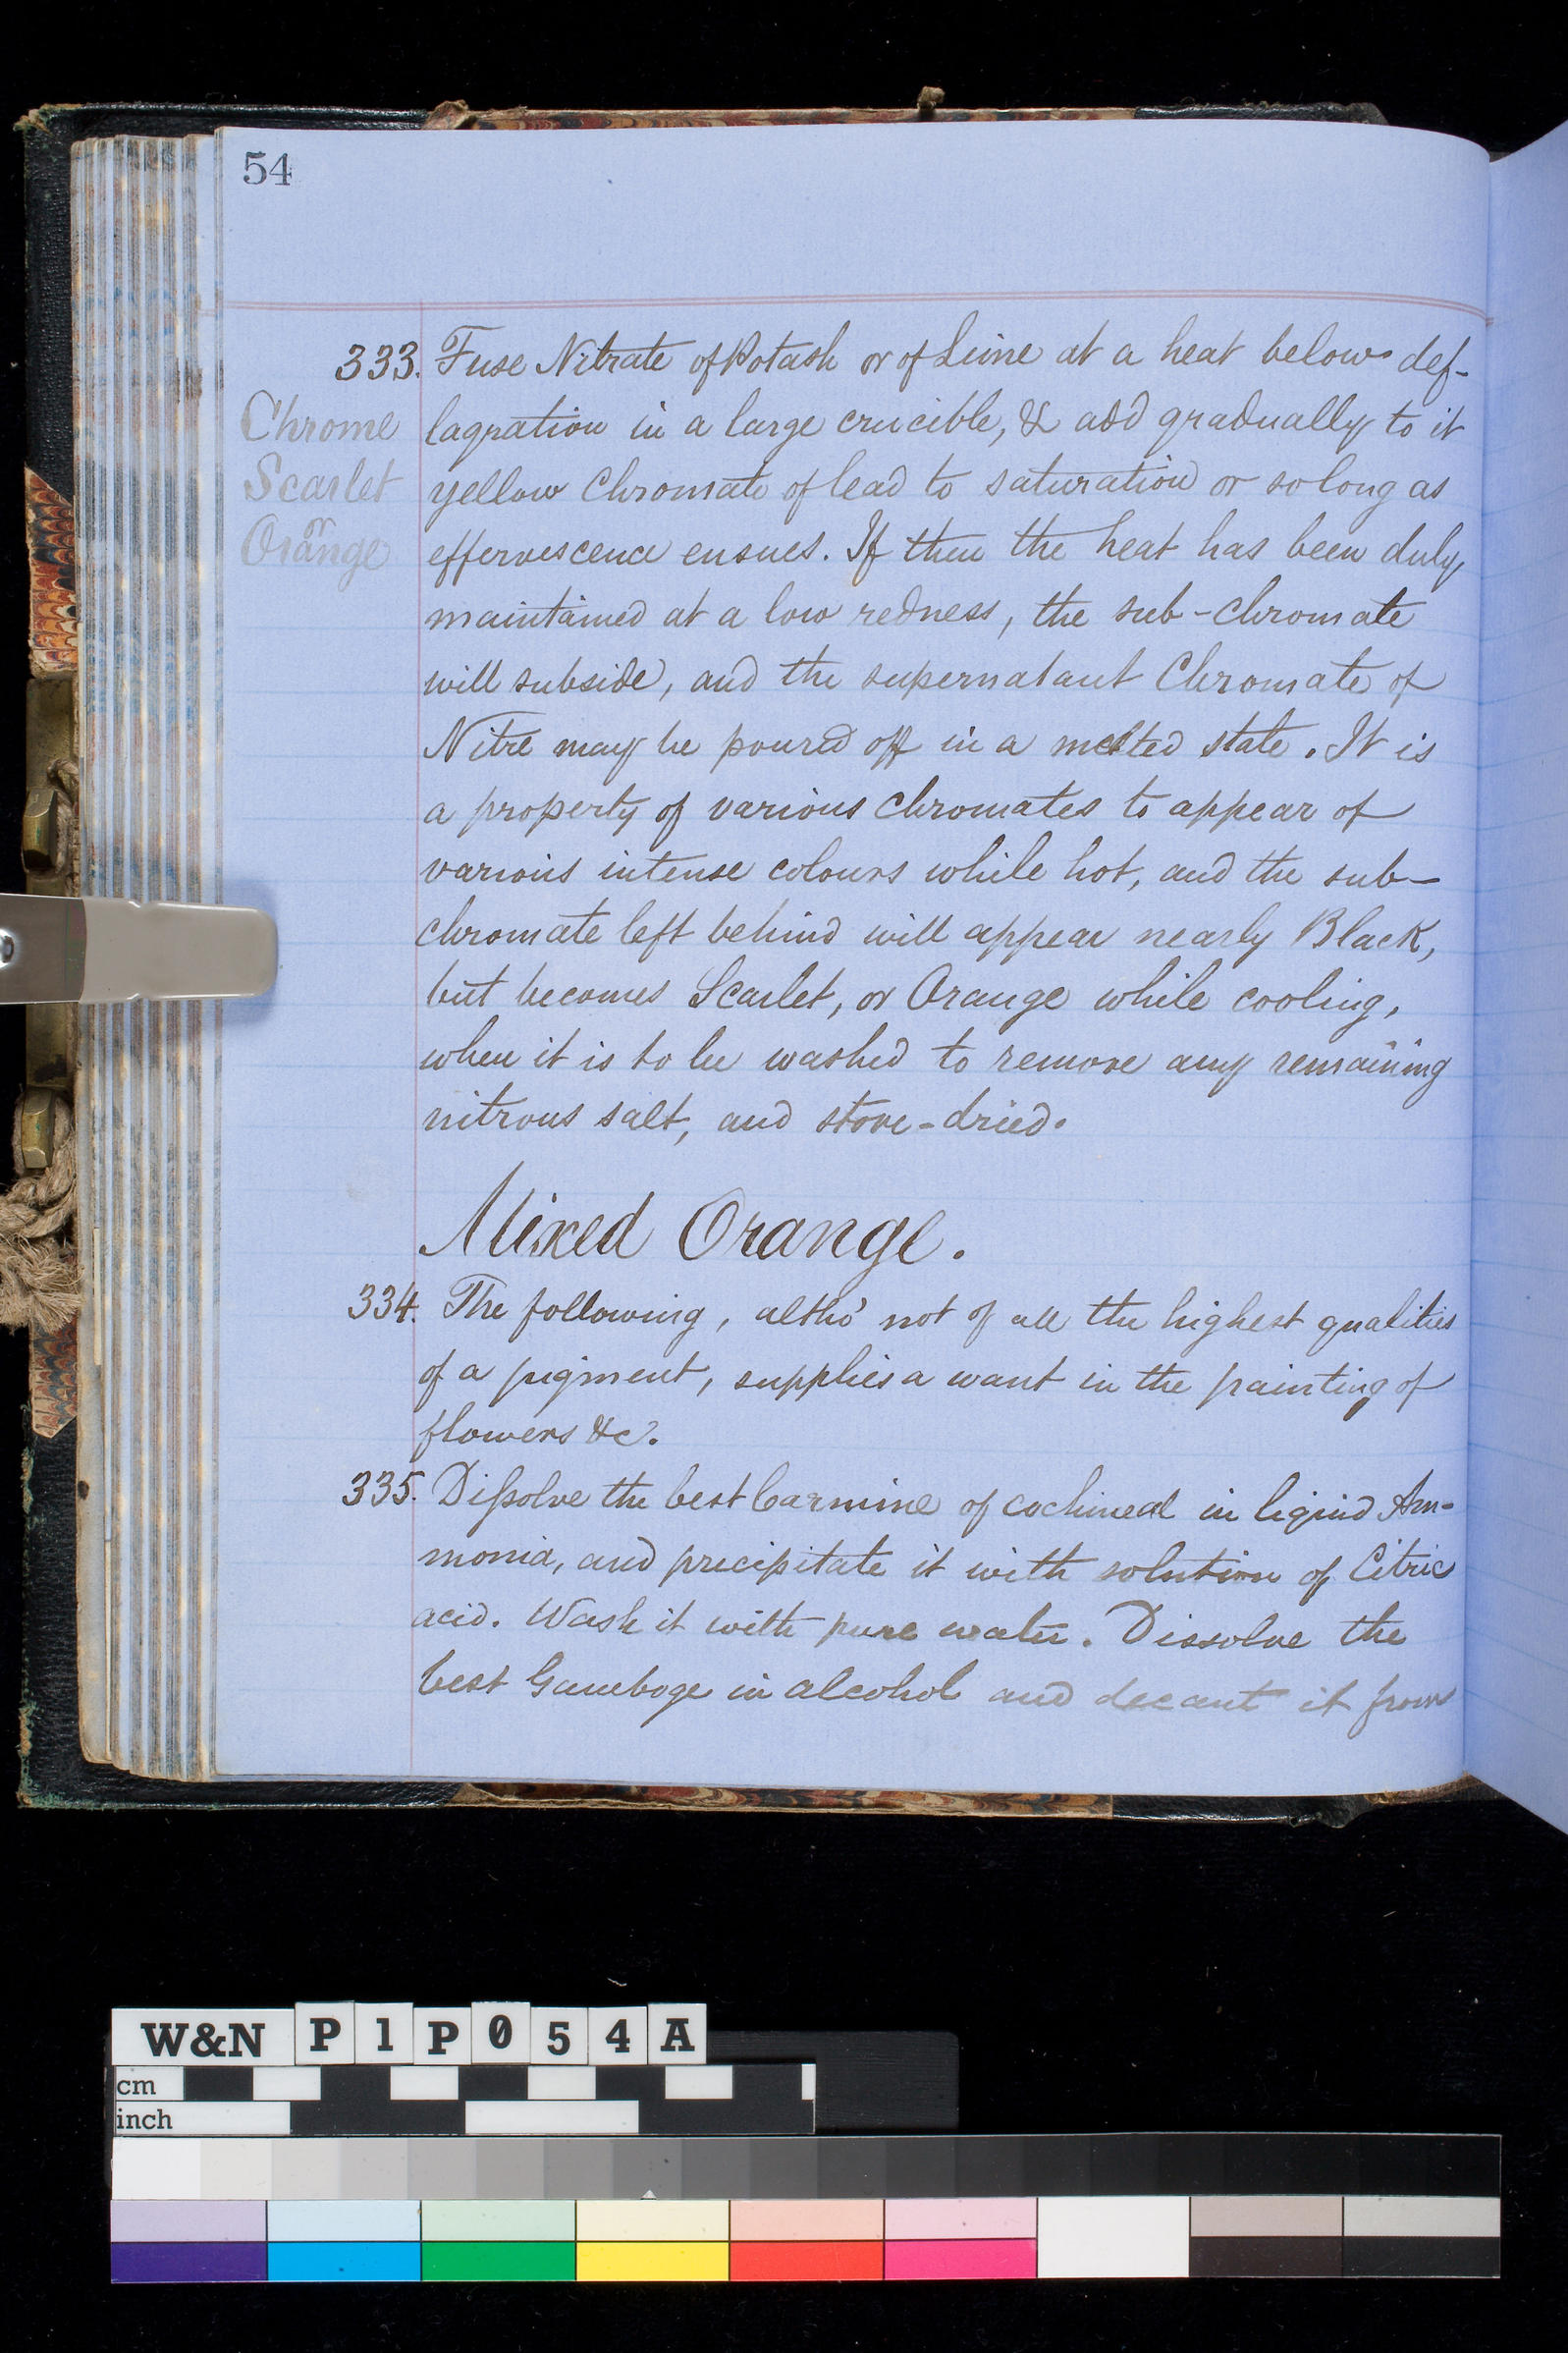 54
333. Fuse Nitrate of Potash or of Lime at a heat below def-
Chrome
Scarlet
or
Orange
lagration in a large crucible, & add gradually to it
yellow Chromate of lead to saturation or so long as
effervescence ensues. If then the heat has been duly
maintained at a low redness, the sub-chromate
will subside, and the supernatant Chromate of
Nitre may be poured off in a melted state. It is
a property of various chromates to appear of
various intense colours while hot, and the sub-
chromate left behind will appear nearly Black,
but becomes Scarlet, or Orange while cooling,
when it is to be washed to remove any remaining
nitrous salt, and stove-dried.
Mixed Orange.
334. The following, altho' not of all the highest qualities
of a pigment, supplies a want in the painting of
flowers &c.
335. Dissolve the best Carmine of cochineal in liquid Am-
monia, and precipitate it with solution of Citric
acid. Wash it with pure water. Dissolve the
best Gamboge in alcohol and decant it from
W&N P1P054A
cm
inch